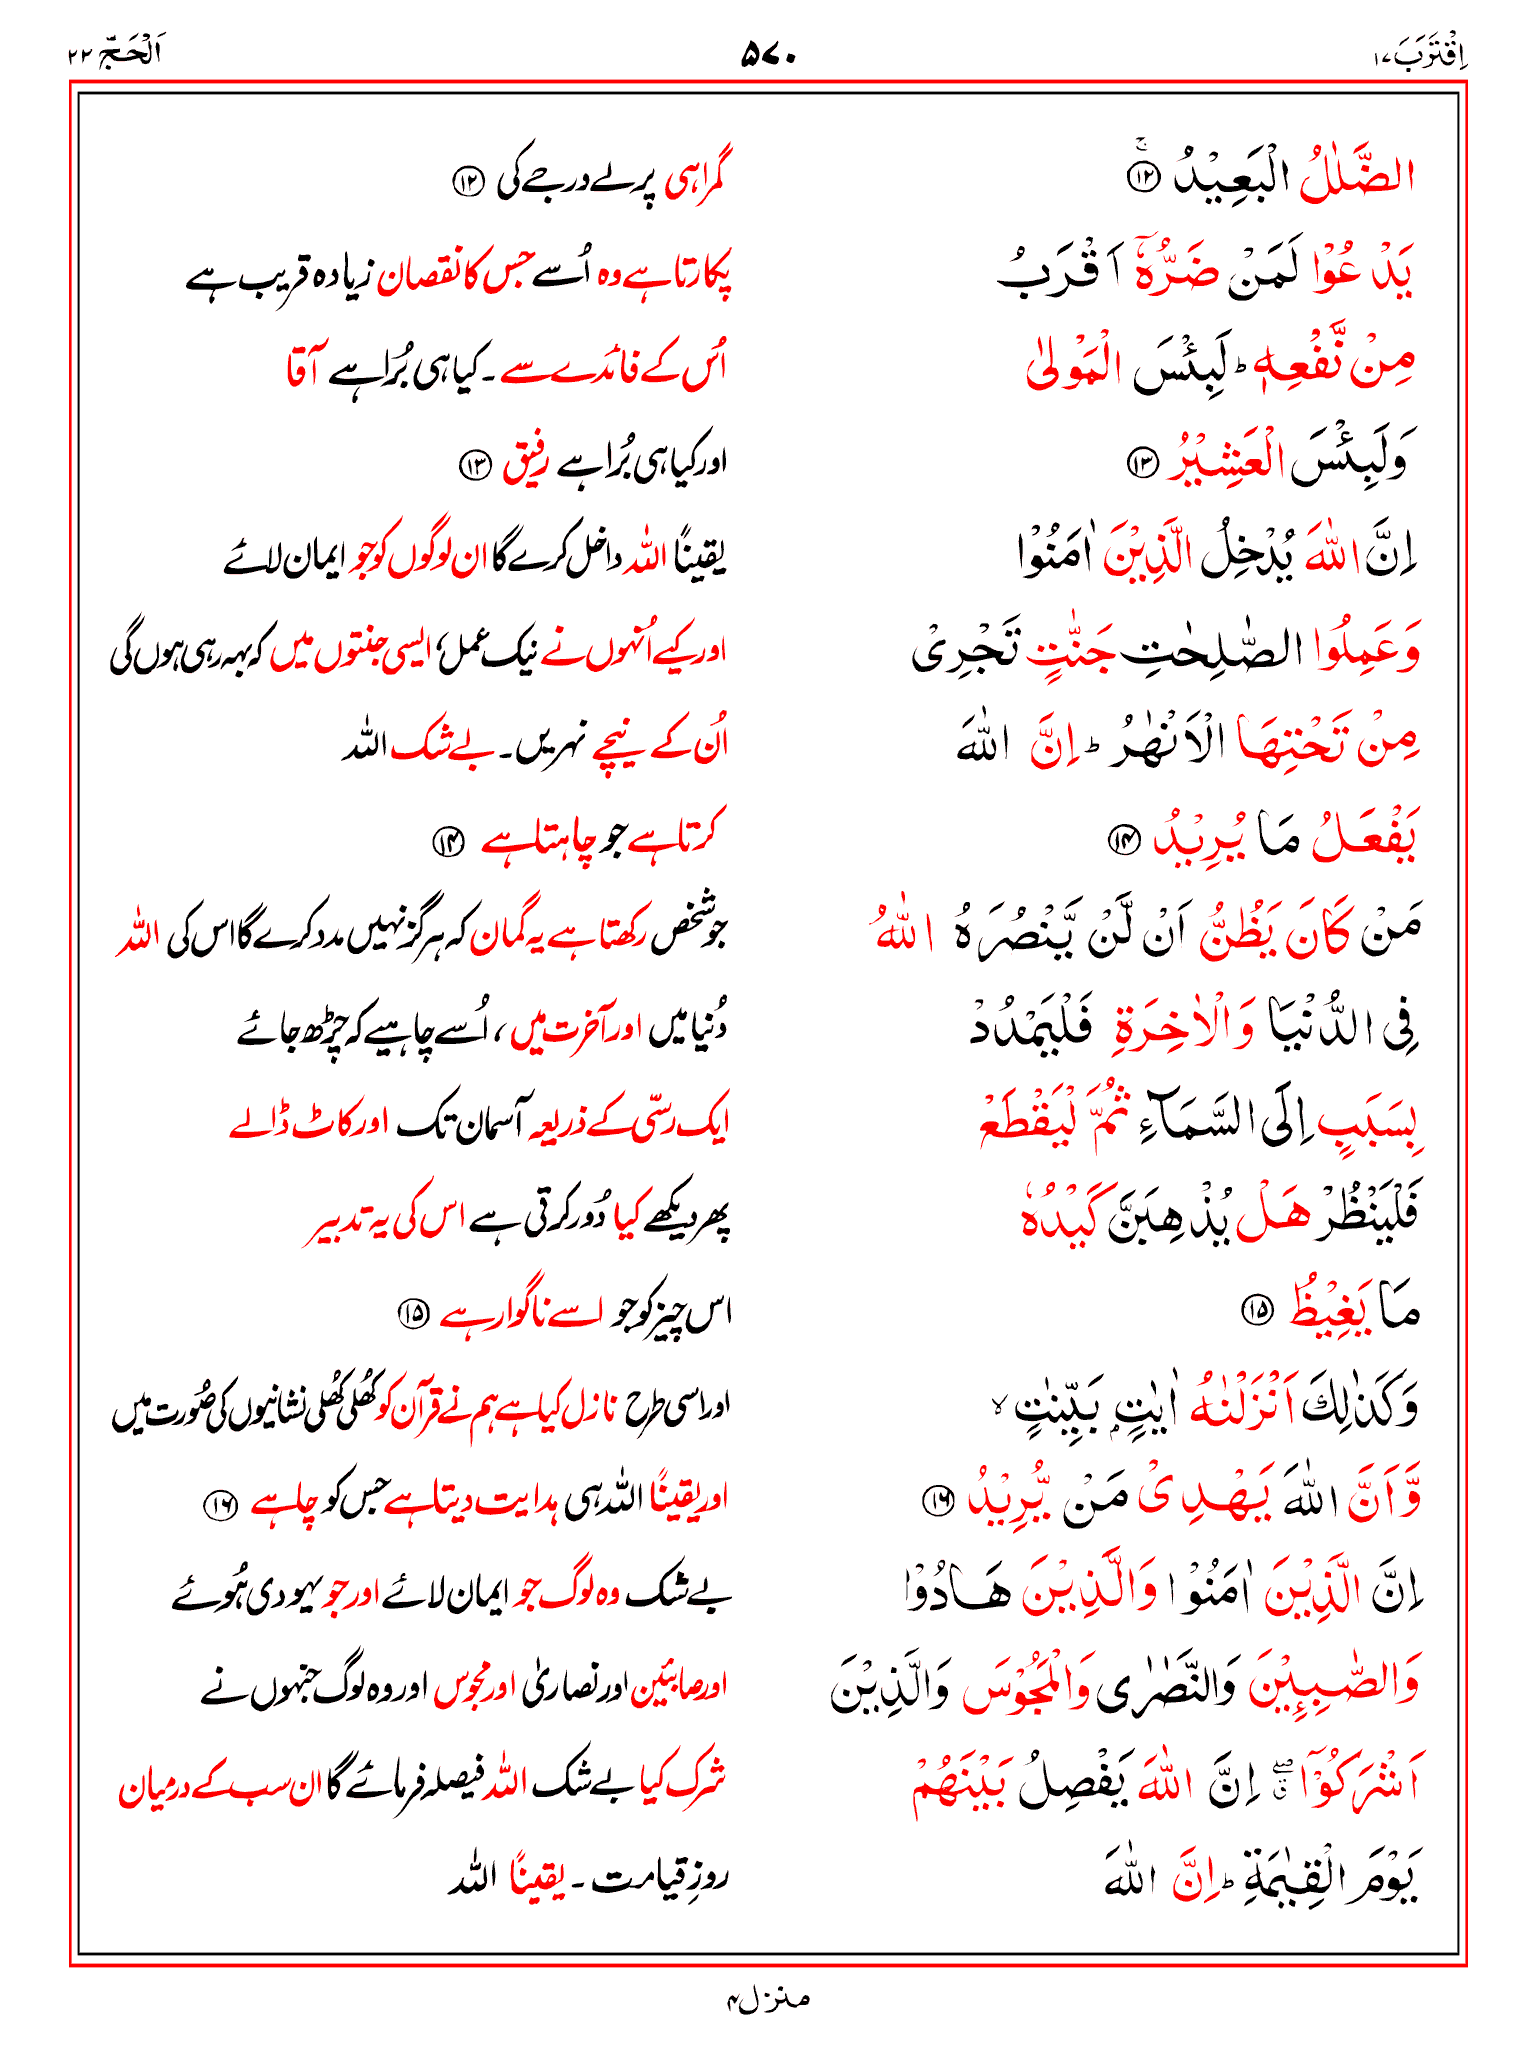 اِقْتَرَبَ ١٧
۵۷۰
اَلْحَجّ ٢٢
الضَّلٰلُ الْبَعِيْدُ ۚ ⑫
گمراہی پرلے درجے کی ⑫
يَدْعُوْا لَمَنْ ضَرُّهٗۤ اَقْرَبُ
پکارتا ہے وہ اُسے جس کا نقصان زیادہ قریب ہے
مِنْ نَّفْعِهٖ ؕ لَبِئْسَ الْمَوْلٰى
اُس کے فائدے سے ۔ کیا ہی بُرا ہے آقا
وَلَبِئْسَ الْعَشِيْرُ ⑬
اور کیا ہی بُرا ہے رفیق ⑬
اِنَّ اللّٰهَ يُدْخِلُ الَّذِيْنَ اٰمَنُوْا
یقیناً اللہ داخل کرے گا ان لوگوں کو جو ایمان لائے
وَعَمِلُوا الصّٰلِحٰتِ جَنّٰتٍ تَجْرِيْ
اور کیے اُنہوں نے نیک عمل، ایسی جنتوں میں کہ بہہ رہی ہوں گی
مِنْ تَحْتِهَا الْاَنْهٰرُ ؕ اِنَّ اللّٰهَ
اُن کے نیچے نہریں۔ بے شک اللہ
يَفْعَلُ مَا يُرِيْدُ ⑭
کرتا ہے جو چاہتا ہے ⑭
مَنْ كَانَ يَظُنُّ اَنْ لَّنْ يَّنْصُرَهُ اللّٰهُ
جو شخص رکھتا ہے یہ گمان کہ ہرگز نہیں مدد کرے گا اس کی اللہ
فِى الدُّنْيَا وَالْاٰخِرَةِ فَلْيَمْدُدْ
دُنیا میں اور آخرت میں، اُسے چاہیے کہ چڑھ جائے
بِسَبَبٍ اِلَى السَّمَآءِ ثُمَّ لْيَقْطَعْ
ایک رسّی کے ذریعہ آسمان تک اور کاٹ ڈالے
فَلْيَنْظُرْ هَلْ يُذْهِبَنَّ كَيْدُهٗ
پھر دیکھے کیا دُور کرتی ہے اس کی یہ تدبیر
مَا يَغِيْظُ ⑮
اس چیز کو جو اسے ناگوار ہے ⑮
وَكَذٰلِكَ اَنْزَلْنٰهُ اٰيٰتٍۭ بَيِّنٰتٍ ۙ
اور اسی طرح نازل کیا ہے ہم نے قرآن کو کھُلی کھُلی نشانیوں کی صُورت میں
وَّاَنَّ اللّٰهَ يَهْدِيْ مَنْ يُّرِيْدُ ⑯
اور یقیناً اللہ ہی ہدایت دیتا ہے جس کو چاہے ⑯
اِنَّ الَّذِيْنَ اٰمَنُوْا وَالَّذِيْنَ هَادُوْا
بے شک وہ لوگ جو ایمان لائے اور جو یہودی ہُوئے
وَالصّٰبِـِٕيْنَ وَالنَّصٰرٰى وَالْمَجُوْسَ وَالَّذِيْنَ
اور صابئین اور نصاریٰ اور مجوس اور وہ لوگ جنہوں نے
اَشْرَكُوْۤا ۖۗ اِنَّ اللّٰهَ يَفْصِلُ بَيْنَهُمْ
شرک کیا بے شک اللہ فیصلہ فرمائے گا ان سب کے درمیان
يَوْمَ الْقِيٰمَةِ ؕ اِنَّ اللّٰهَ
روزِ قیامت ۔ یقیناً اللہ
منزل ۴